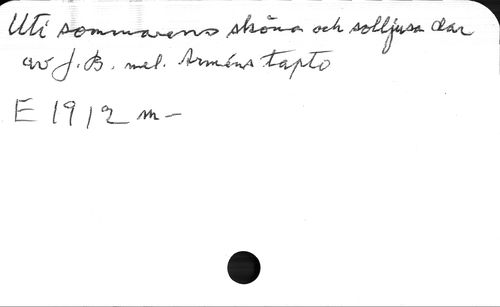 Uti sommarens sköna och solljusa dar
av J. B. mel. Arméns tapto
E 1912 m-